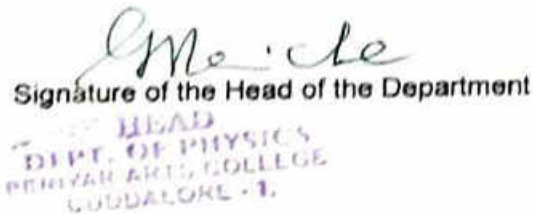 Signature of the Head of the Department
HEAD
DEPT. OF PHYSICS
PERIYAR ARTS COLLEGE
CUDDALORE - 1.